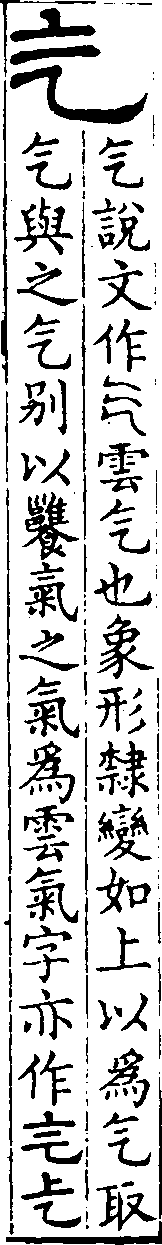 气
气說文作气雲气也象形隸變如上以爲气取
气與之气别以饔氣之氣爲雲氣字亦作